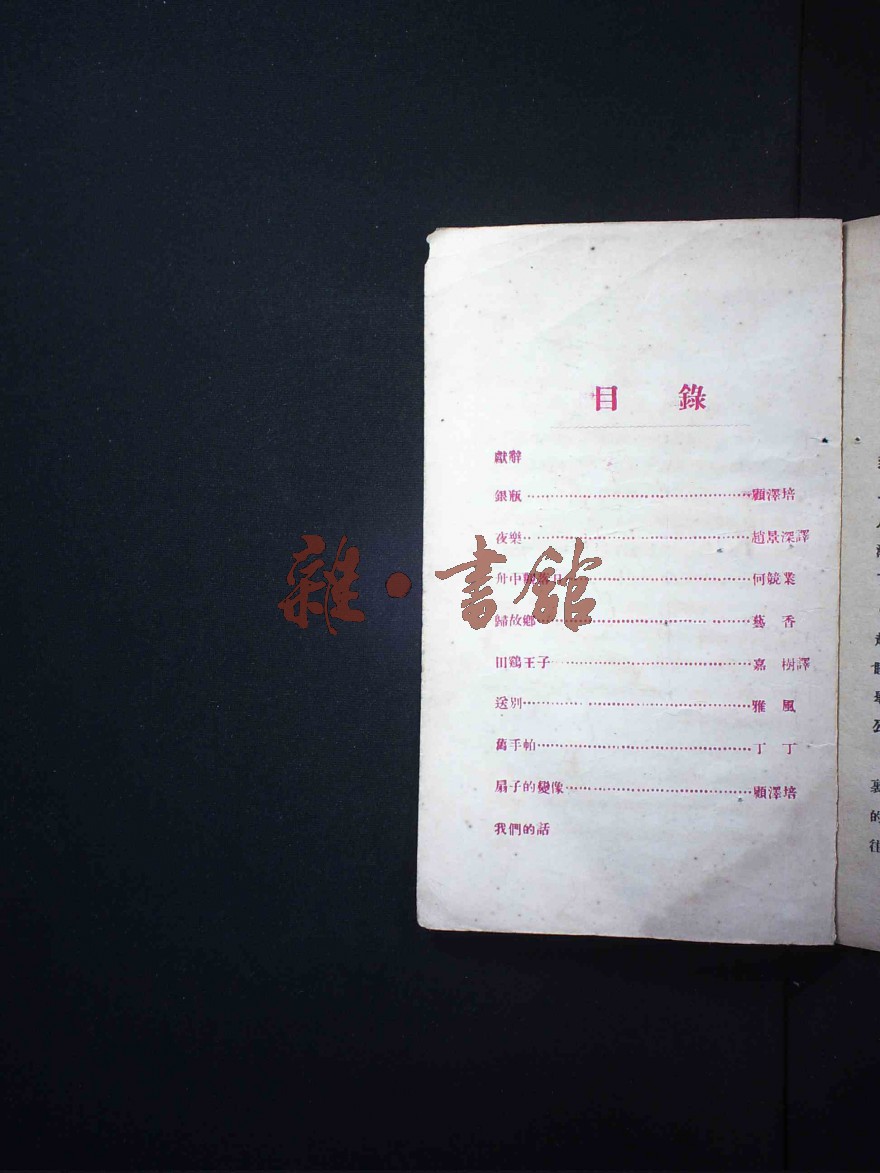 目錄
獻辭
銀瓶……顧澤培
夜樂……趙景深譯
舟中觀落日……何競業
歸故鄉……藝香
田鷄王子……嘉樹譯
送別……雅風
舊手帕……丁丁
扇子的變像……顧澤培
我們的話
雜·書館